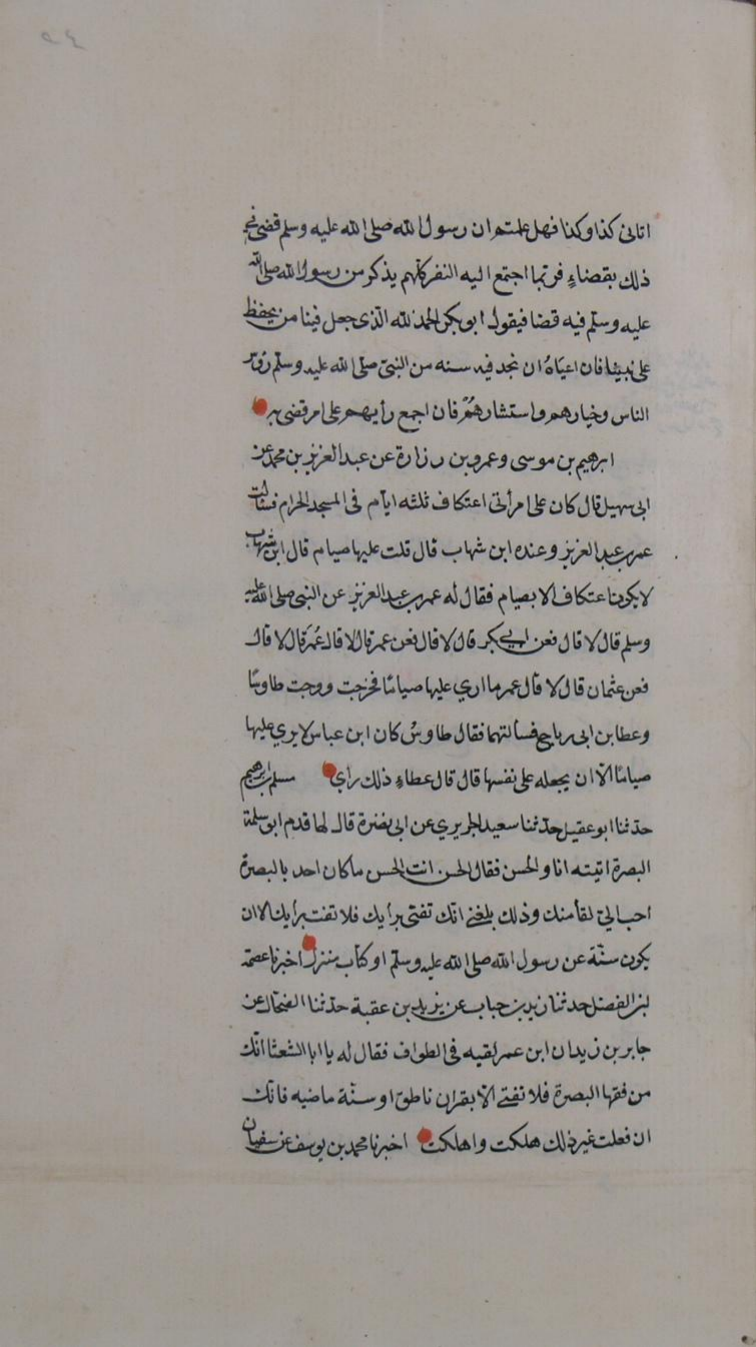 اتانى كذا وكذا فهل علمتم ان رسول الله صلى الله عليه وسلم قضى في
ذلك بقضاءٍ فربّما اجتمع اليه النفر كلّهم يذكر من رسول الله صلى الله
عليه وسلّم فيه قضا فيقول ابو بكر الحمد لله الّذى جعل فينا من يحفظ
على نبيّنا فان اعيَاهُ ان نجد فيه سنه من النبىّ صلّى الله عليه وسلّم
الناس وخيارهم واستشارهُمْ فان اجمع رأيهم على امر قضى به
ابرهيم بن موسى وعمرو بن زرارة عن عبد العزيز بن محمد عن
ابى سهيل قال كان على امرأتى اعتكاف ثلثه ايّام فى المسجد الحرام فسالت
عمر بن عبد العزيز وعنده ابن شهاب قال قلت عليها صيام قال ابن شهاب
لا يكون اعتكاف الا بصيام فقال له عمر بن عبد العزيز عن النبى صلى الله عليه
وسلم قال لا قال فعن ابى بكر قال لا قال فعن عمر قال لا قال عُمَر قال لا قال
فعن عثمان قال لا قال عمر ما ارى عليها صياما فخرجت ووجت طاوسًا
وعطا بن ابى رباح فسالتهما فقال طاوسٌ كان ابن عباس لا يرى عليها
صيامًا الا ان يجعله على نفسها قال قال عطاءٍ ذلك رأى مسلم بن ابرهيم
حدّثنا ابو عقيل حدّثنا سعيد الجريري عن ابى نضرة قال لما قدم ابو سلمة
البصرة اتيته انا والحسن فقال للحسن انت الحسن ما كان احد بالبصرة
احب الىّ لقاً منك وذلك بلغنى انّك تفتى برأيك فلا تفت برأيك الا ان
يكون سنّة عن رسول الله صلى الله عليه وسلّم او كتاب منزل اخبرنا عصمة
بن الفضل حدثنا زيد بن حباب عن يزيد بن عقبة حدّثنا الضحّاك عن
جابر بن زيد ان ابن عمر لقيه فى الطواف فقال له يا ابا الشعثا انّك
من فقها البصرة فلا تفتى الّا بقران ناطق او سنّة ماضيه فانّك
ان فعلت غير ذلك هلكت واهلكت اخبرنا محمد بن يوسف عن سفيان